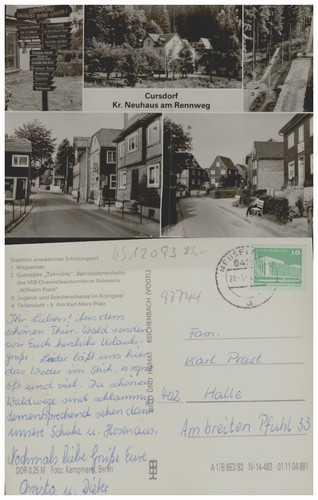 Cursdorf
Kr. Neuhaus am Rennweg
Staatlich anerkannter Erholungsort
1 Wegweiser
2 Gaststätte „Tormühle“, Betriebsferienheim
des VEB Chemiefaserkombinat Schwarza
„Wilhelm Pieck“
3 Jugend- und Schülerherberge im Königstal
4 Teilansicht · 5 Am Karl-Marx-Platz
Ihr Lieben! Aus dem
schönen Thür. Wald senden
wir Euch herzliche Urlaubs-
grüße. Leider läßt uns hier
das Wetter im Stich, es regnet
oft und viel. Die schönen
Waldwege sind schlammig
dementsprechend sehen dann
unsere Schuhe u. Hosen aus.
Nochmals liebe Grüße Eure
Christa u. Dieter
DDR 0,25 M Foto: Kampmann, Berlin
BILD UND HEIMAT REICHENBACH (VOGTL)
4512093
10
Fam.
Karl Prast
402 Halle
Am breiten Pfuhl 33
A 1/B 653/83 IV-14-483 01 11 04 881